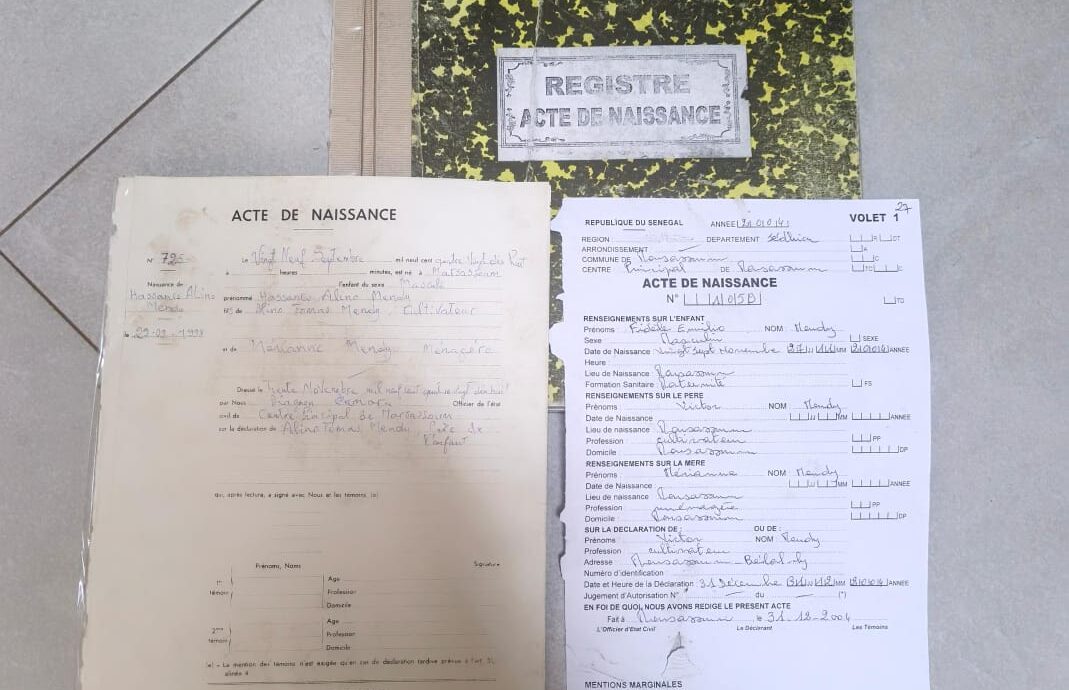 REGISTRE
ACTE DE NAISSANCE
ACTE DE NAISSANCE
N° 725
Le Vingt Neuf Septembre mil neuf cent quatre vingt dix huit
à heures minutes, est né à Marsassoum
Naissance de
l'enfant du sexe Masculin
prénommé Alino Mendy
Mendy
Fils de Alino Tomas Mendy, Cultivateur
le 29-09-1998
et de Marianne Mendy, Ménagère
Dressé le trente Novembre mil neuf cent quatre vingt dix huit
par Nous Camara Officier de l'état
civil de Centre Principal de Marsassoum
sur la déclaration de Alino Tomas Mendy Père de
l'enfant
qui, après lecture, a signé avec Nous et les témoins. (a)
Prénoms, Noms
Signature
1er témoin
Age
Profession
Domicile
2me témoin
Age
Profession
Domicile
(a) - La mention des témoins n'est exigée qu'en cas de déclaration tardive prévue à l'art. 51,
alinéa 4
27
REPUBLIQUE DU SENEGAL ANNEE 2004 VOLET 1
REGION DEPARTEMENT Sédhiou R DT
ARRONDISSEMENT A
COMMUNE DE Marsassoum C
CENTRE Principal DE Marsassoum TC C
ACTE DE NAISSANCE
N° TD
RENSEIGNEMENTS SUR L'ENFANT
Prénoms Fidèle Emilio NOM Mendy
Sexe Masculin SEXE
Date de Naissance Vingt Sept Novembre 27 11 MM 2004 ANNEE
Heure :
Lieu de Naissance Marsassoum
Formation Sanitaire Maternité FS
RENSEIGNEMENTS SUR LE PERE
Prénoms Victor NOM Mendy
Date de Naissance MM ANNEE
Lieu de naissance Marsassoum
Profession cultivateur PP
Domicile Marsassoum DP
RENSEIGNEMENTS SUR LA MERE
Prénoms NOM Mendy
Date de Naissance MM ANNEE
Lieu de naissance Marsassoum
Profession ménagère PP
Domicile Marsassoum DP
SUR LA DECLARATION DE : OU DE :
Prénoms Victor NOM Mendy
Profession cultivateur
Adresse Marsassoum
Numéro d'identification
Date et Heure de la Déclaration 31 Décembre 31 12 MM 2004 ANNEE
Jugement d'Autorisation N° du (*)
EN FOI DE QUOI, NOUS AVONS REDIGE LE PRESENT ACTE
Fait à Marsassoum le 31-12-2004
L'Officier d'Etat Civil Le Déclarant Les Témoins
MENTIONS MARGINALES